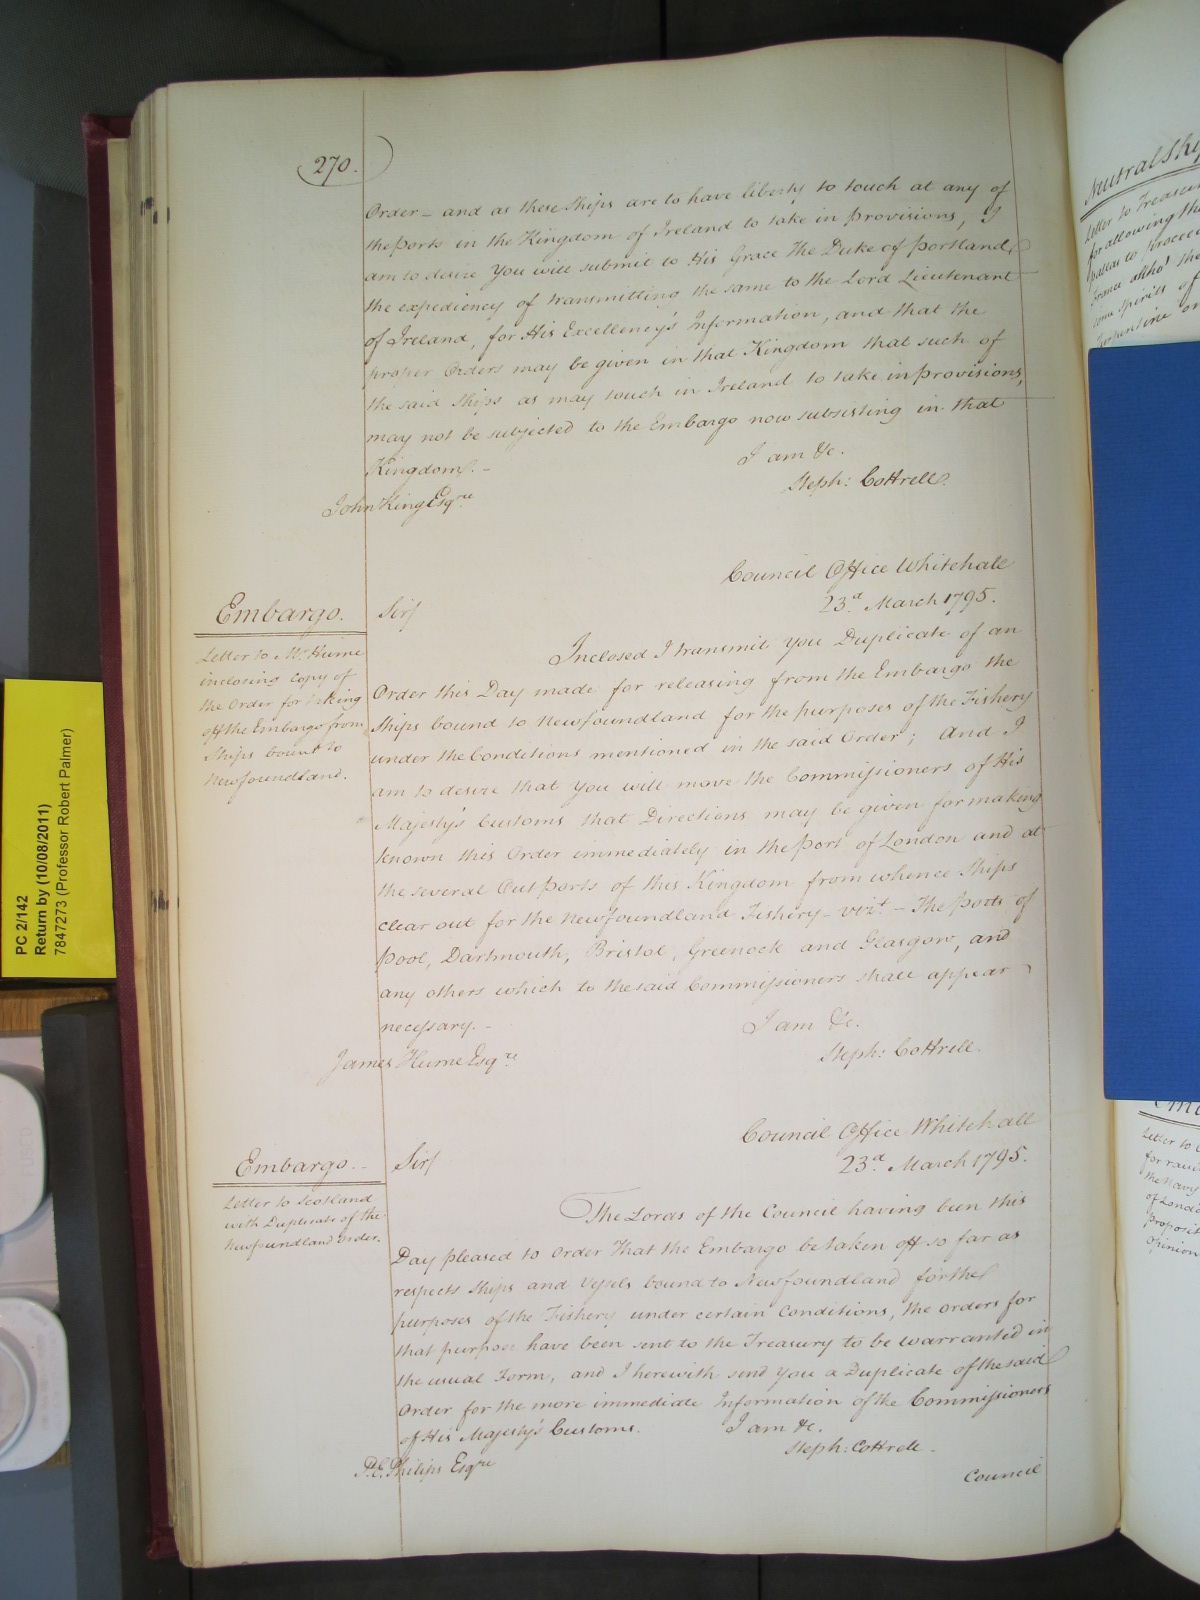 270.
Order – and as these Ships are to have liberty to touch at any of
the Ports in the Kingdom of Ireland to take in Provisions, I
am to desire you will submit to His Grace The Duke of Portland
the expediency of transmitting the same to the Lord Lieutenant
of Ireland, for His Excellency's Information, and that the
proper Orders may be given in that Kingdom that such of
the said Ships as may touch in Ireland to take in provisions,
may not be subjected to the Embargo now subsisting in that
Kingdom. –
I am &c.
Steph: Cottrell.
John King Esqre
Council Office Whitehall
23d. March 1795.
Embargo.
Letter to Mr. Hume
inclosing Copy of
the Order for taking
off the Embargo from
Ships bound to
Newfoundland.
Sir/
Inclosed I transmit you Duplicate of an
Order this Day made for releasing from the Embargo the
Ships bound to Newfoundland for the purposes of the Fishery
under the Conditions mentioned in the said Order; And I
am to desire that you will move the Commissioners of His
Majesty's Customs that Directions may be given for making
known this Order immediately in the Port of London and at
the several Out Ports of this Kingdom from whence Ships
clear out for the Newfoundland Fishery – vizt – The Ports of
Pool, Dartmouth, Bristol, Greenock and Glasgow, and
any others which to the said Commissioners shall appear
necessary. –
I am &c.
Steph: Cottrell.
James Hume Esqre
Council Office Whitehall
23d. March 1795.
Embargo. –
Letter to Scotland
with Duplicate of the
Newfoundland Order.
Sir/
The Lords of the Council having been this
Day pleased to Order That the Embargo be taken off so far as
respects Ships and Vessels bound to Newfoundland for the
purposes of the Fishery under certain Conditions, the Orders for
that purpose have been sent to the Treasury to be warranted in
the usual Form, and I herewith send you a Duplicate of the said
Order for the more immediate Information of the Commissioners
of His Majesty's Customs.
I am &c.
Steph: Cottrell.
P.E. Philips Esqre
Council
PC 2/142
Return by (10/08/2011)
7847273 (Professor Robert Palmer)
Neutral Ship
Letter to Treasur
for allowing the
to proceed
France altho' the
some spirits of
Turpentine on
Letter to
the Navy
of London
proposit
opinion